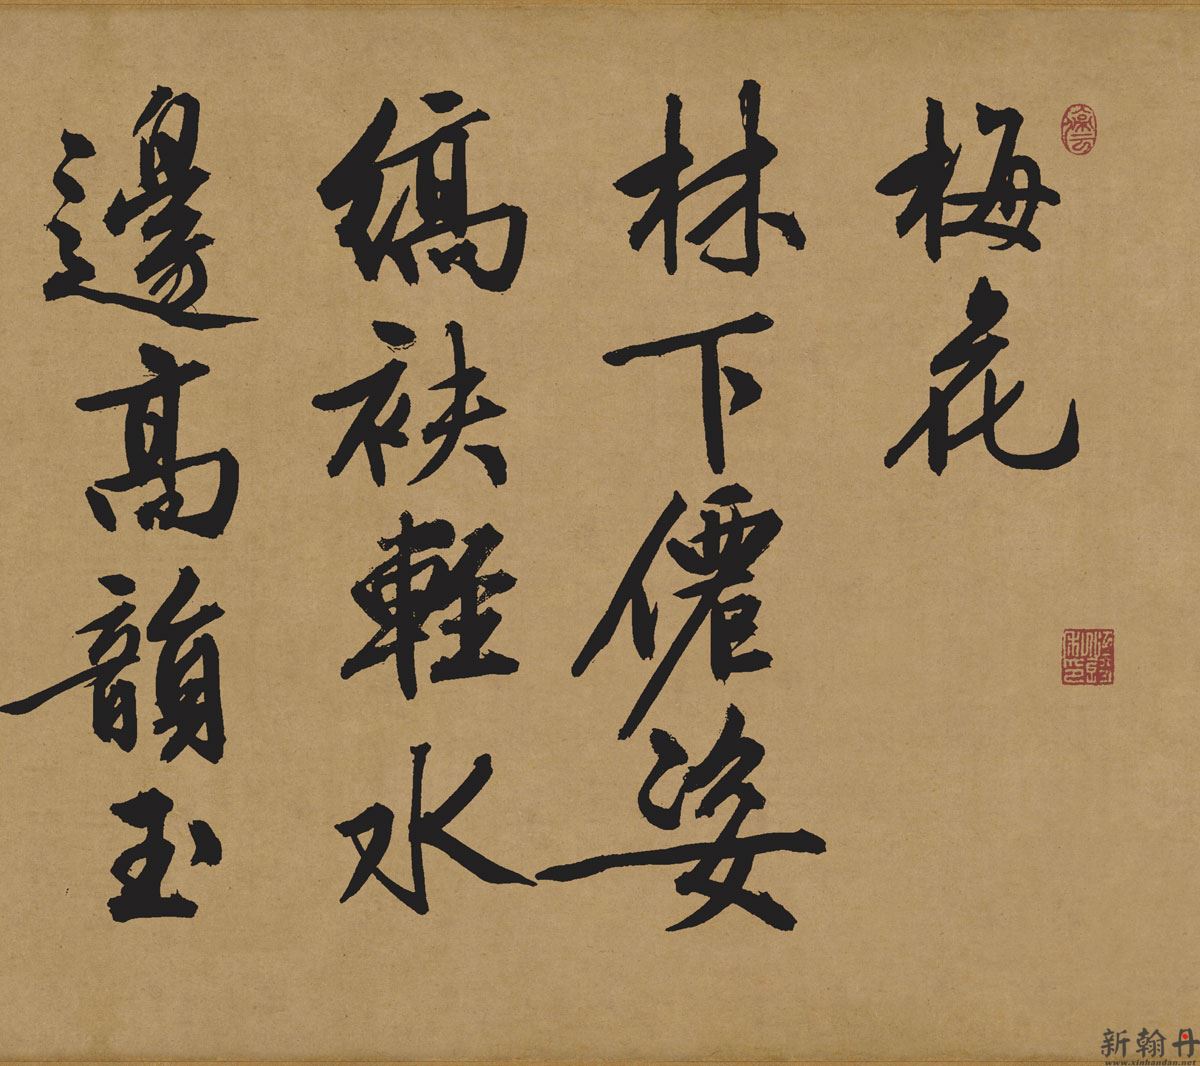 梅花
林下僊姿
縞袂輕水
邊高韻玉
新翰丹
www.xinhandan.net